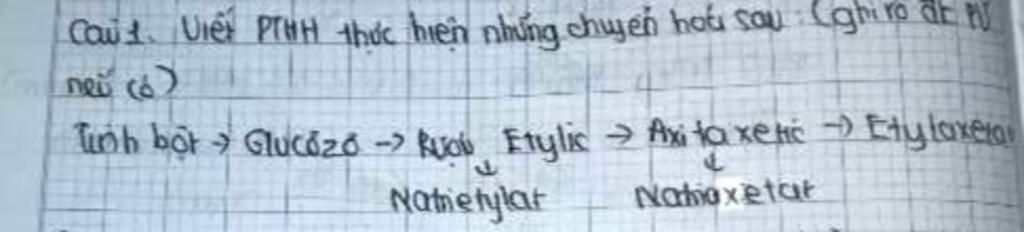 Câu 1. Viết PTHH thực hiện những chuyển hoá sau: (ghi rõ đk
nếu có)
Tinh bột → Glucôzô → Rượu Etylic → Axit axetic → Etylaxetat
↓ ↓
Natrietylat Natriaxetat